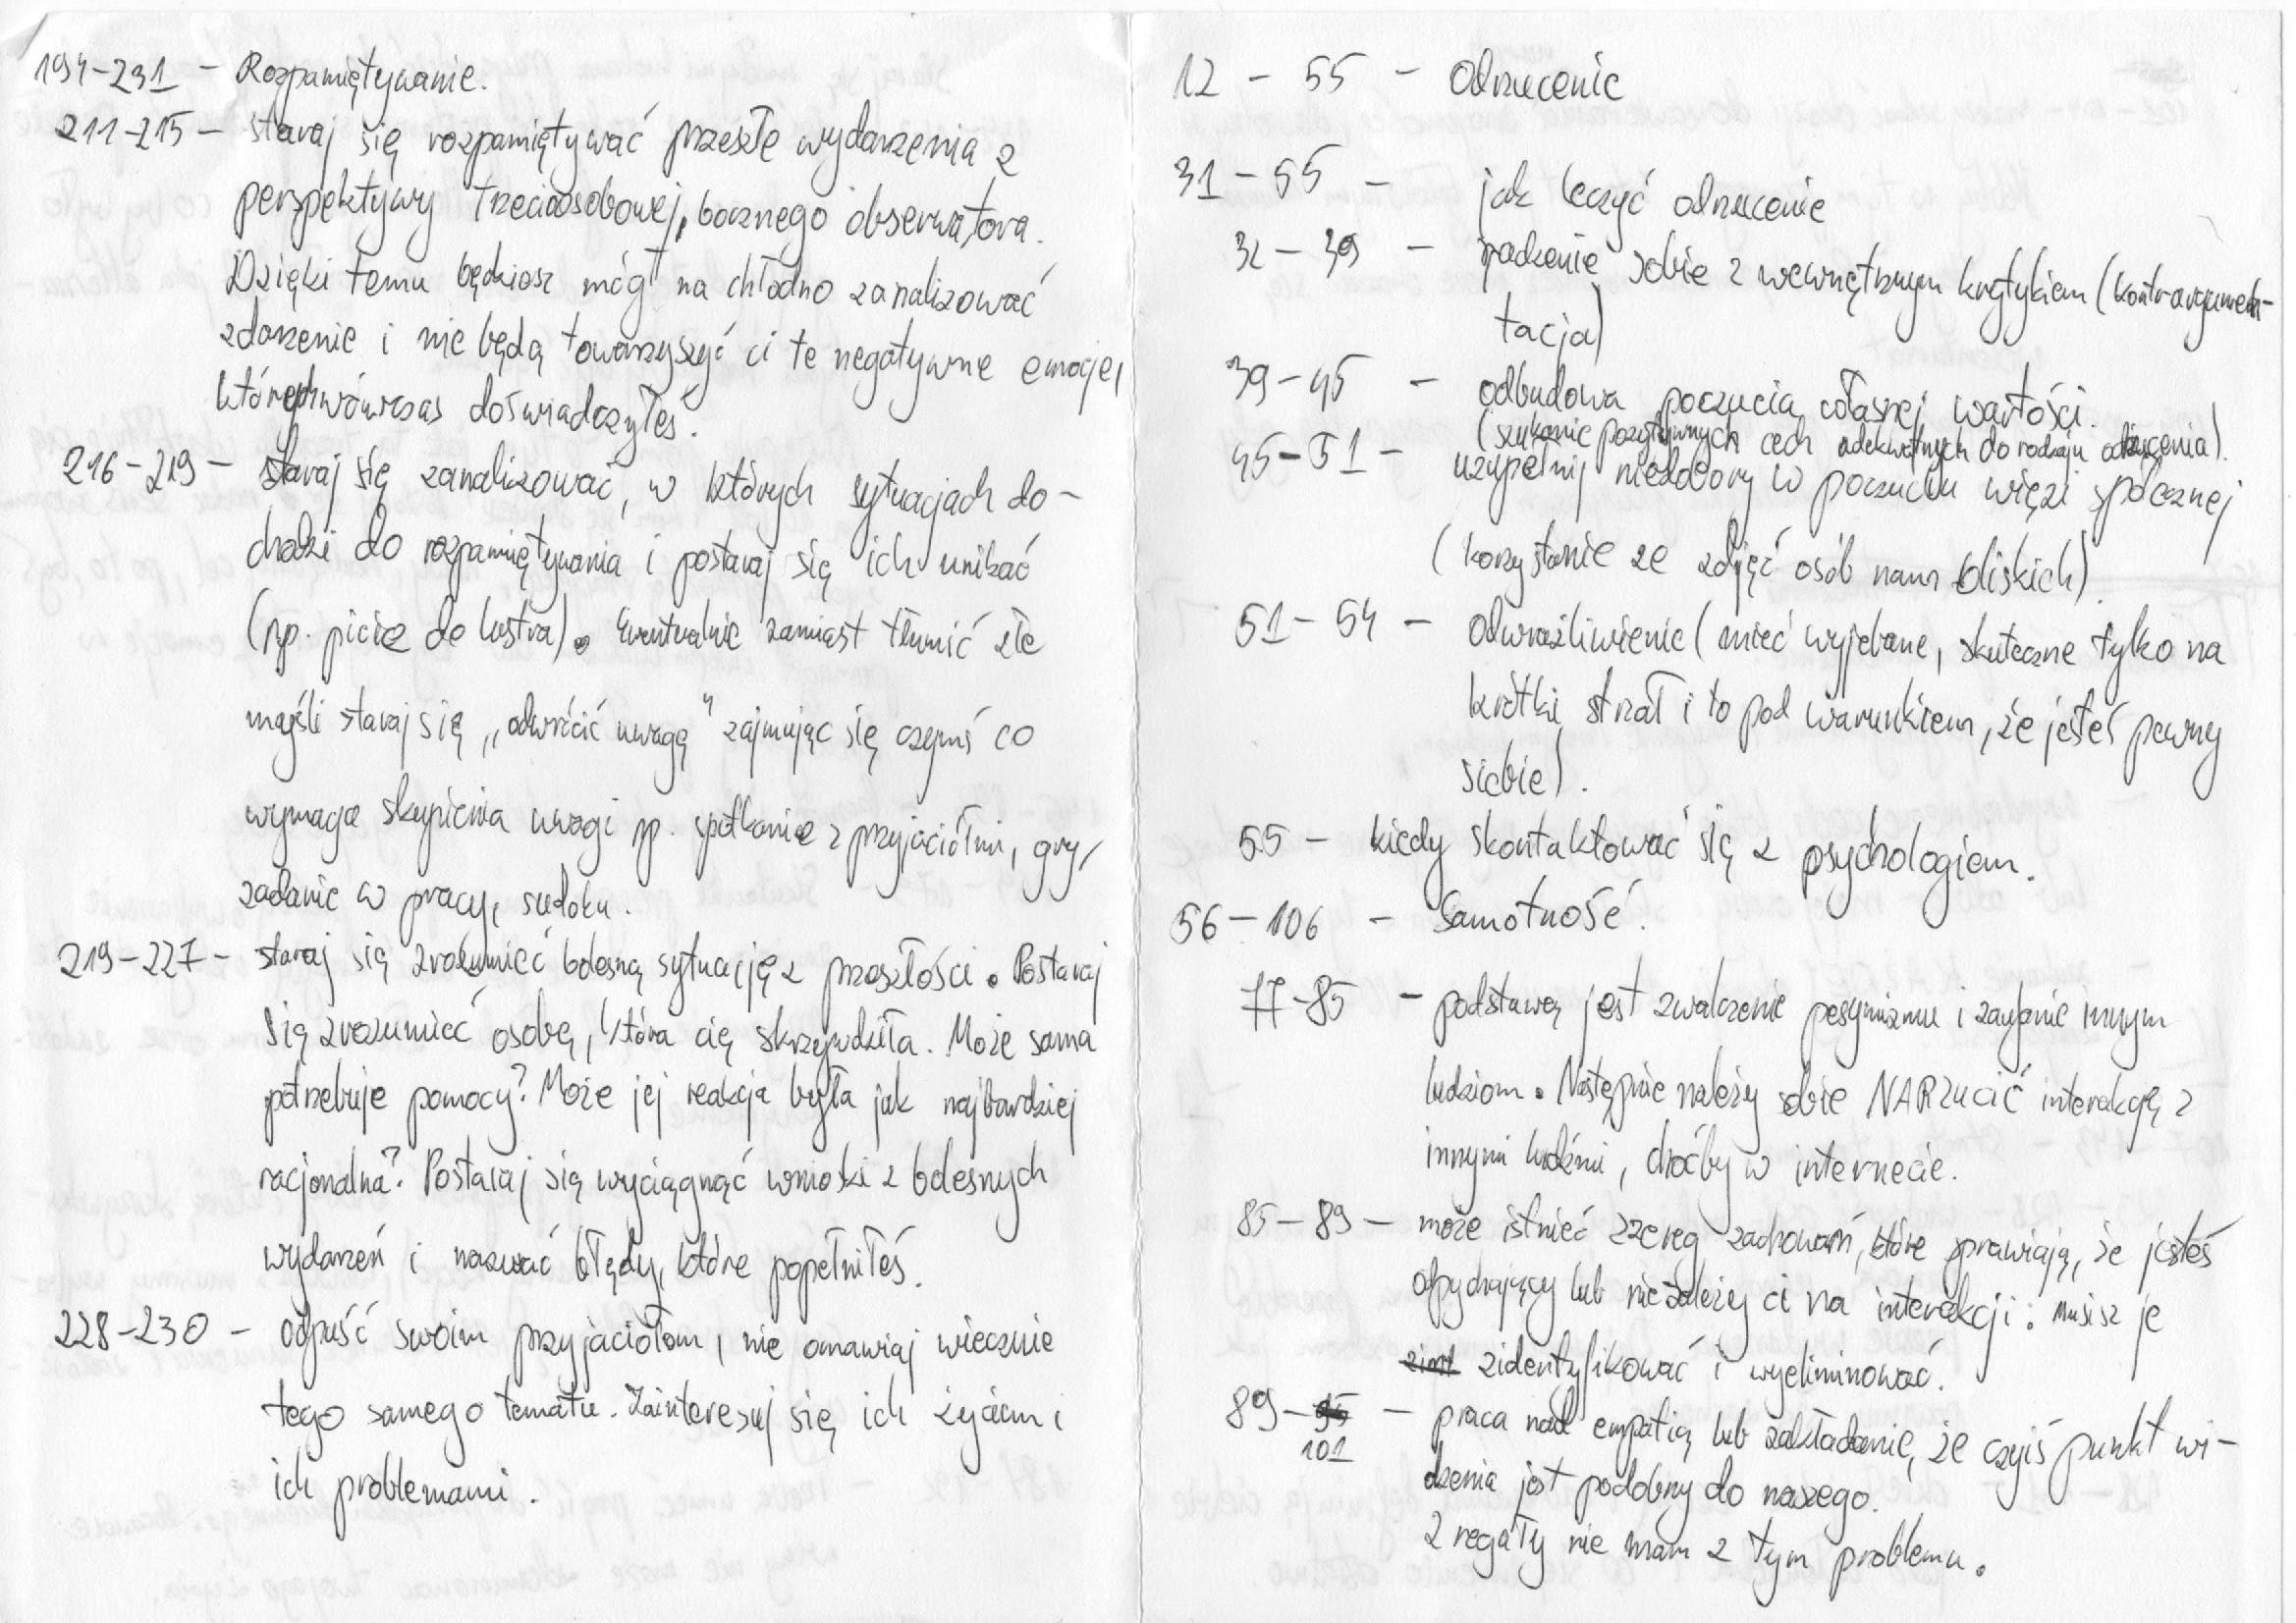 194-231 - Rozpamiętywanie.
211-215 - staraj się rozpamiętywać przeszłe wydarzenia z
perspektywy trzecioosobowej, bocznego obserwatora.
Dzięki temu będziesz mógł na chłodno zanalizować
zdarzenie i nie będą towarzyszyć ci te negatywne emocje,
których wówczas doświadczyłeś.
216-219 - staraj się zanalizować, w których sytuacjach do-
chodzi do rozpamiętywania i postaraj się ich unikać
(np. picie do lustra). Ewentualnie zamiast tłumić złe
myśli staraj się „odwrócić uwagę" zajmując się czymś co
wymaga skupienia uwagi np. spotkanie z przyjaciółmi, gry,
zadanie w pracy, sudoku.
219-227 - staraj się zrozumieć bolesną sytuację z przeszłości. Postaraj
się zrozumieć osobę, która cię skrzywdziła. Może sama
potrzebuje pomocy? Może jej reakcja była jak najbardziej
racjonalna? Postaraj się wyciągnąć wnioski z bolesnych
wydarzeń i nazwać błędy, które popełniłeś.
228-230 - odpuść swoim przyjaciołom, nie omawiaj wiecznie
tego samego tematu. Zainteresuj się ich życiem i
ich problemami.
12 - 55 - Odrzucenie
31 - 55 - jak leczyć odrzucenie
32 - 39 - radzenie sobie z wewnętrznym krytykiem (kontrargumen-
tacja)
39-45 - odbudowa poczucia własnej wartości.
(szukanie pozytywnych cech adekwatnych do rodzaju odrzucenia).
45-51 - uzupełnij niedobory w poczuciu więzi społecznej
(korzystanie ze zdjęć osób nam bliskich).
51 - 54 - odwrażliwienie (mieć wyjebane, skuteczne tylko na
krótki strzał i to pod warunkiem, że jesteś pewny
siebie).
55 - kiedy skontaktować się z psychologiem.
56 - 106 - Samotność.
77-85 - podstawą jest zwalczenie pesymizmu i zaufanie innym
ludziom. Następnie należy sobie NARZUCIĆ interakcję z
innymi ludźmi, choćby w internecie.
85-89 - może istnieć szereg zachowań, które sprawiają, że jesteś
odpychający lub nie zależy ci na interakcji: musisz je
zidentyfikować i wyeliminować.
89-95 - praca nad empatią lub zakładanie, że czyiś punkt wi-
101
dzenia jest podobny do naszego.
Z reguły nie mam z tym problemu.